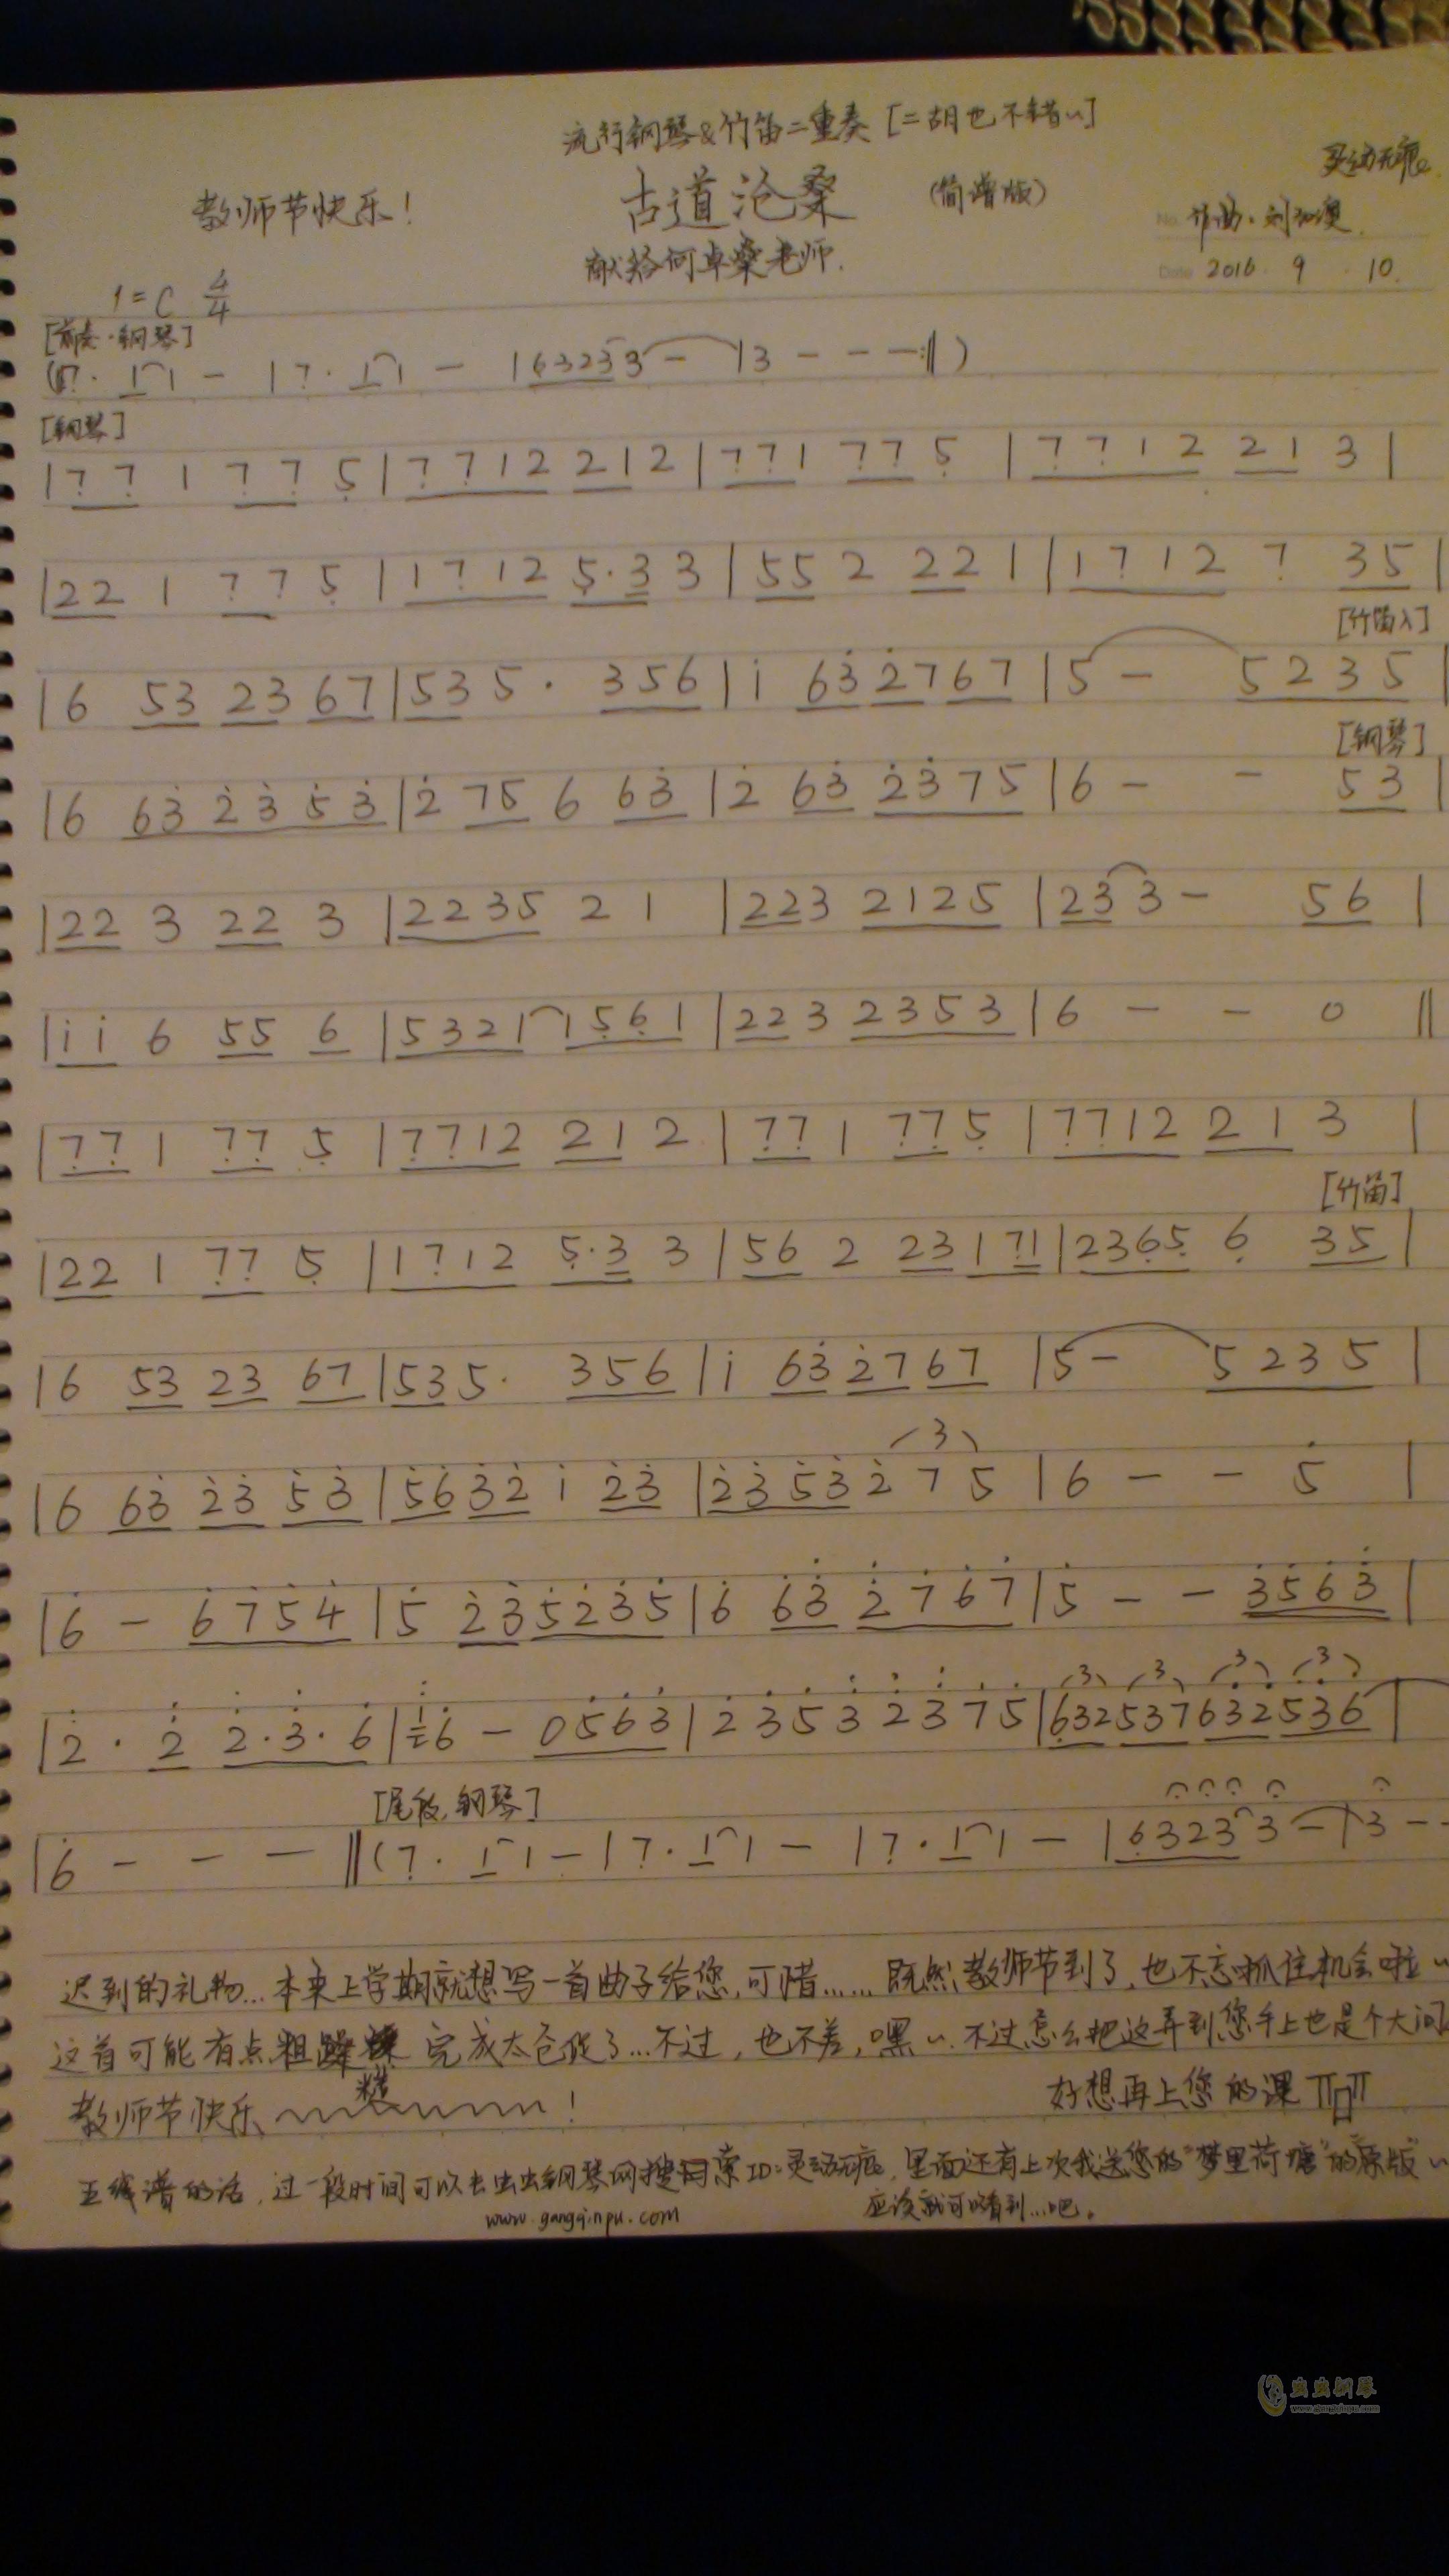 流行钢琴&竹笛二重奏 [二胡也不错~]
灵动无痕
教师节快乐！ 古道沧桑 (简谱版)
作曰:刘
献给何卓桑老师.
Date 2016. 9 . 10.
1=C 4/4
[前奏·钢琴]
(7̣· 1 1 1 - | 7̣· 1 1 1 - | 6 3 2 3 3 3 - | 3 - - - :‖ )
[钢琴]
| 7̣ 7̣ 1 7̣ 7̣ 5̣ | 7̣ 7̣ 1 2 2 1 2 | 7̣ 7̣ 1 7̣ 7̣ 5̣ | 7̣ 7̣ 1 2 2 1 3 |
| 2 2 1 7̣ 7̣ 5̣ | 1 7̣ 1 2 5̣· 3̣ 3 | 5 5 2 2 2 1 | 1 7̣ 1 2 7̣ 3 5 |
[竹笛入]
| 6 5 3 2 3 6 7 | 5 3 5 · 3 5 6 | i 6 3̇ 2̇ 7 6 7 | 5 - 5 2 3 5 |
[钢琴]
| 6 6 3̇ 2̇ 3̇ 5̇ 3̇ | 2̇ 7 5 6 6 3̇ | 2̇ 6 3̇ 2̇ 3̇ 7 5 | 6 - - 5 3 |
| 2 2 3 2 2 3 | 2 2 3 5 2 1 | 2 2 3 2 1 2 5 | 2 3 3 - 5 6 |
| i i 6 5 5 6 | 5 3 2 1 1 5̣ 6̣ 1 | 2 2 3 2 3 5 3 | 6 - - 0 ‖
| 7̣ 7̣ 1 7̣ 7̣ 5̣ | 7̣ 7̣ 1 2 2 1 2 | 7̣ 7̣ 1 7̣ 7̣ 5̣ | 7̣ 7̣ 1 2 2 1 3 |
[竹笛]
| 2 2 1 7̣ 7̣ 5̣ | 1 7̣ 1 2 5̣· 3̣ 3 | 5 6 2 2 3 1 7̣ 1 | 2 3 6̣ 5̣ 6̣ 3 5 |
| 6 5 3 2 3 6 7 | 5 3 5 · 3 5 6 | i 6 3̇ 2̇ 7 6 7 | 5 - 5 2 3 5 |
3
| 6 6 3̇ 2̇ 3̇ 5̇ 3̇ | 5̇ 6̇ 3̇ 2̇ i 2̇ 3̇ | 2̇ 3̇ 5̇ 3̇ 2̇ 7 5 | 6 - - 5̇ |
| 6̇ - 6̇ 7̇ 5̇ 4̇ | 5̇ 2̇ 3̇ 5̇ 2̇ 3̇ 5̇ | 6̇ 6̇ 3̇ 2̇ 7̇ 6̇ 7̇ | 5̇ - - 3̇ 5̇ 6̇ 3̇ |
3 3 3 3
| 2̇ · 2̇ 2̇ · 3̇ · 6̇ | 1 6̇ - 0 5̇ 6̇ 3̇ | 2̇ 3̇ 5̇ 3̇ 2̇ 3̇ 7̇ 5̇ | 6 3 2 5 3 7 6 3 2 5 3 6 |
[尾段,钢琴]
| 6̇ - - - ‖ (7̣· 1 1 1 - | 7̣· 1 1 1 - | 7̣· 1 1 1 - | 6 3 2 3 3 - | 3 - -
迟到的礼物... 本来上学期就想写一首曲子给您,可惜...... 既然教师节到了,也不忘抓住机会啦~
这首可能有点粗糙 完成太仓促了...不过,也不差,嘿~. 不过怎么把这弄到您手上也是个大问
教师节快乐 ! 好想再上您的课 TロT
五线谱的话,过一段时间可以去虫虫钢琴网搜索ID:灵动无痕,里面还有上次我送您的"梦里荷塘"的原版~
www.gangqinpu.com 应该就可以看到...吧。
虫虫钢琴
www.gangqinpu.com